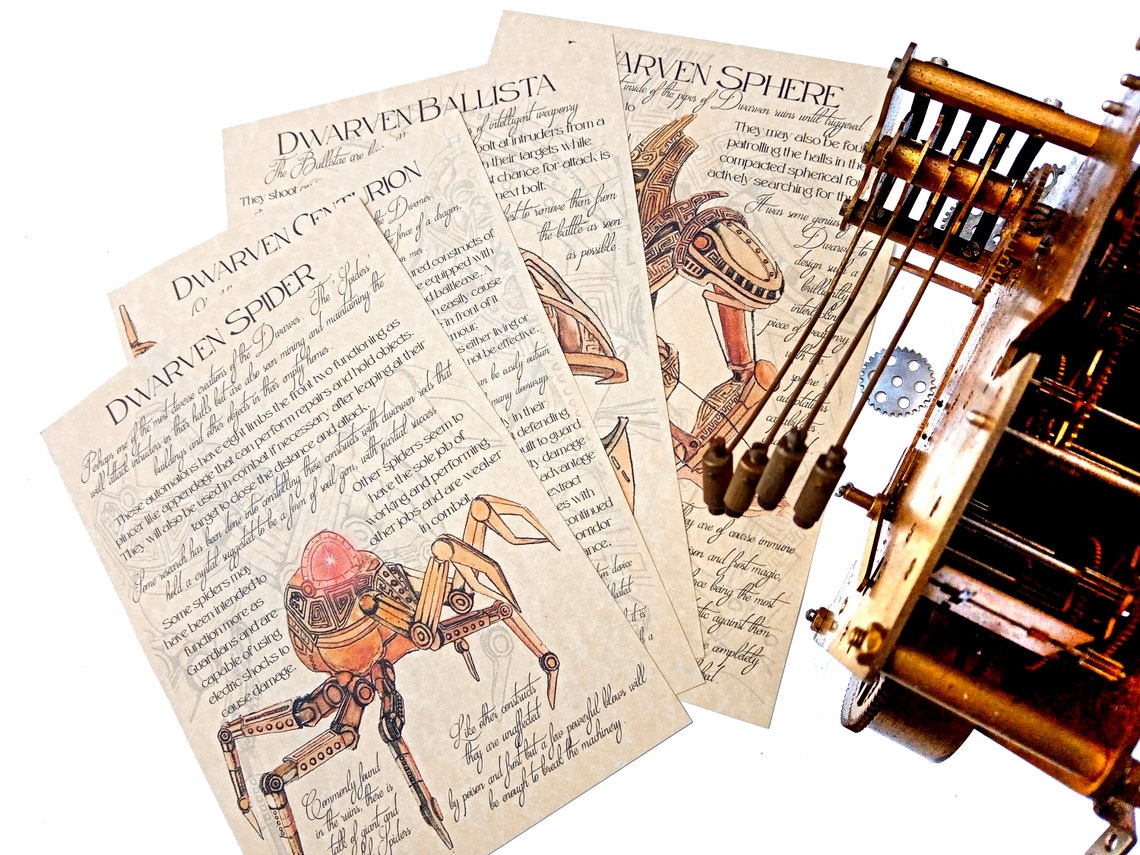 DWARVEN SPIDER
Perhaps one of the most diverse creations of the Dwarves. The 'Spiders'
will attack intruders in their halls but are also seen mining and maintaining the
buildings and other objects in their empty homes.
These automatons have eight limbs the front two functioning as
pincer like appendage that can perform repairs and hold objects.
They will also be used in combat if necessary after leaping at their
target to close the distance and attack.
Some research has been done into controlling these constructs with dwarven rods that
hold a crystal suggested to be a form of soul gem, with partial success
Other spiders seem to
have the sole job of
working and performing
other jobs and are weaker
in combat
Some spiders may
have been intended to
function more as
Guardians and are
capable of using
electric shocks to
cause damage.
Like other constructs
they are unaffected
by poison and frost but a few powerful blows will
be enough to break the machinery
Commonly found
in the ruins, there is
talk of giant and
Spiders
DWARVEN CENTURION
the Dwemer.
the force of a dragon.
constructs of
equipped with
battleaxe. A
easily cause
in front of it
either living or
not be effective.
can be easily outrun
many doorways.
in their
defending
built to guard
damage
advantage.
extract
with
continued
corridor
DWARVEN BALLISTA
The Ballistae are
They shoot
of intelligent weaponry
bolt at intruders from a
their targets while
chance for attack is
next bolt.
to remove them from
the battle as soon
as possible.
ARVEN SPHERE
inside of the pipes of Dwarven ruins until triggered
to
They may also be fou
patrolling the halls in the
compacted spherical fo
actively searching for th
It was some genius
Dwarves to
design such a
brilliantly
piece of
sphere's
They are of course immune
and frost magic,
being the most
against them
completely